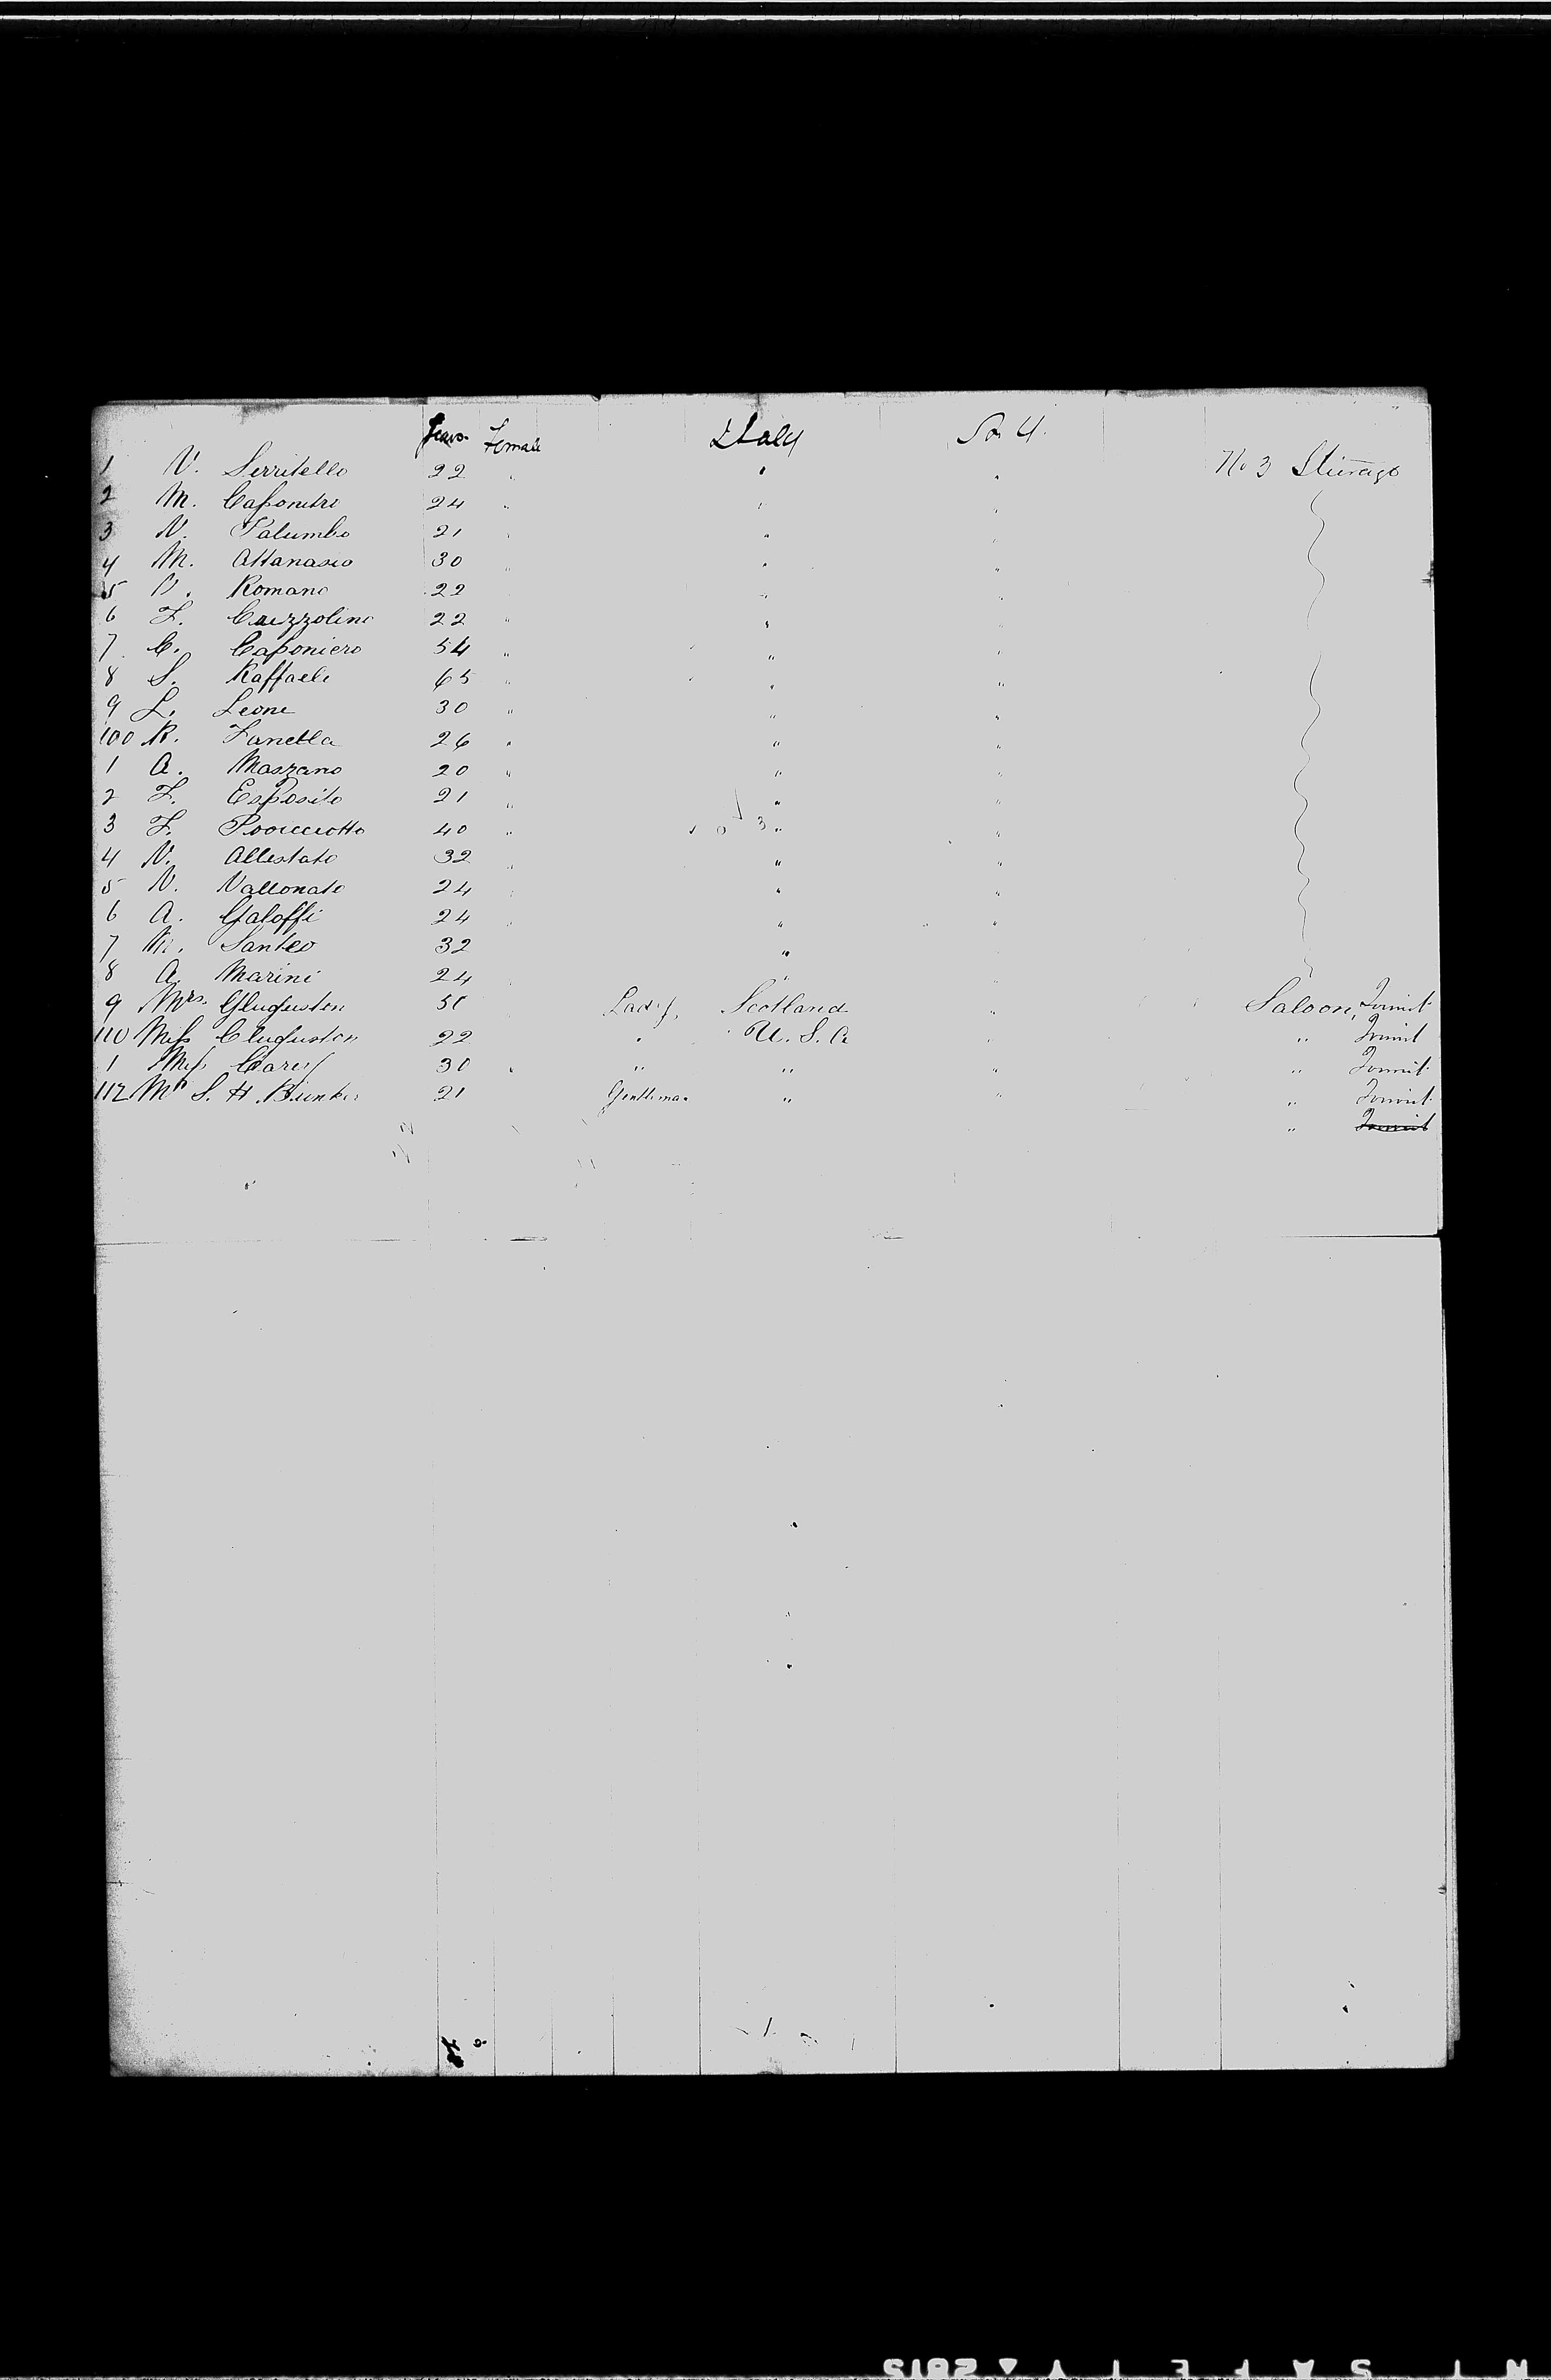 Years Female Italy
1 V. Serritello 22 " " " No 3 Steerage
2 M. Caponitri 24 " " "
3 N. Palumbo 21 " " "
4 M. Attanasio 30 " " "
5 Romano 22 " "
6 F. Cuzzolino 22 " " "
7 C. Caponiero 54 " " "
8 S. Raffaele 65 " " "
9 L. Leone 30 " " "
100 R. Zanella 26 " " "
1 A. Maszano 20 " " "
2 F. Esposito 21 " " "
3 F. 40 " 3 " "
4 N. Allestato 32 " " "
5 N. Vallonato 24 " " "
6 A. Galoffi 24 " " "
7 M. Santeo 32 "
8 A. Marini 24 "
9 Mrs. Gluguston Lady, Scotland " Saloon, Tourist
110 Miss Cluguston 22 " U.S.A " " Tourist
1 Miss Carey 30 " " " " " Tourist
112 Mr S. H. Bunker 21 Gentleman " " " Tourist
" Tourist